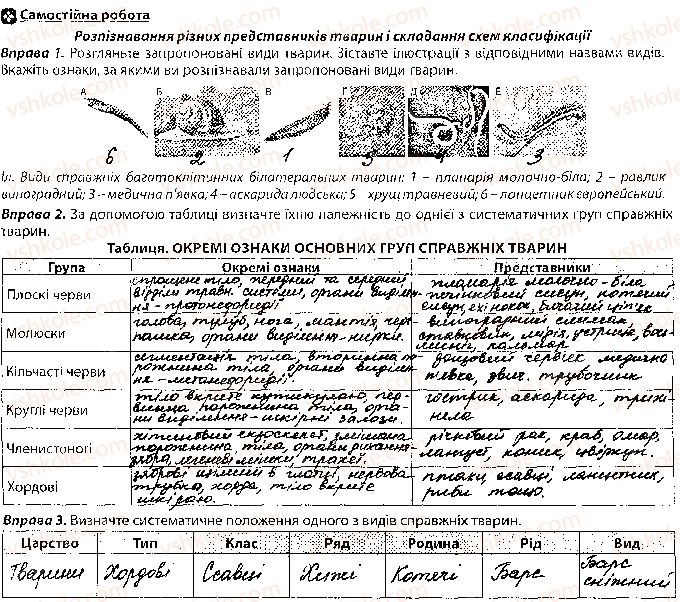 Самостійна робота
Розпізнавання різних представників тварин і складання схем класифікації
Вправа 1. Розгляньте запропоновані види тварин. Зіставте ілюстрації з відповідними назвами видів.
Вкажіть ознаки, за якими ви розпізнавали запропоновані види тварин.
А Б В Г Д Е
6 2 1 5 4 3
Іл. Види справжніх багатоклітинних білатеральних тварин: 1 – планарія молочно-біла; 2 – равлик
виноградний; 3 - медична п'явка; 4 – аскарида людська; 5 хрущ травневий; 6 – ланцетник європейський.
Вправа 2. За допомогою таблиці визначте їхню належність до однієї з систематичних груп справжніх
тварин.
Таблиця. ОКРЕМІ ОЗНАКИ ОСНОВНИХ ГРУП СПРАВЖНІХ ТВАРИН
Група Окремі ознаки Представники
Плоскі черви
сплющене тіло, передній та середній
відділи травн. системи, органи виділен-
ня - протонефридії
планарія молочно-біла
печінковий сисун, котячий
сисун, ехінокок, бичачий ціп'як
Молюски
голова, тулуб, нога, мантія, чере-
пашка, органи виділен.-нирки.
виноградний слимак
ставковик, мідія, устриця, вось-
миніг, кальмар.
Кільчасті черви
сегментація тіла, вторинна по-
рожнина тіла, органи виділе-
ння - метанефридії
дощовий черв'як медична
п'явка, звич. трубочник
Круглі черви
тіло вкрите кутикулою, пер-
винна порожнина тіла, орга-
ни виділення - шкірні залози.
гострик, аскарида, трихі-
нела
Членистоногі
хітиновий екзоскелет, змішана
порожнина тіла, органи дихання-
зябра, легеневі мішки, трахеї.
річковий рак, краб, омар,
лангуст, комик, цвіркун.
Хордові
зяброві щілини в глотці, нервова
трубка, хорда, тіло вкрите
шкірою.
птахи, ссавці, ланцетник,
риби тощо.
Вправа 3. Визначте систематичне положення одного з видів справжніх тварин.
Царство Тип Клас Ряд Родина Рід Вид
Тварини Хордові Ссавці Хижі Котячі Барс Барс
сніжний